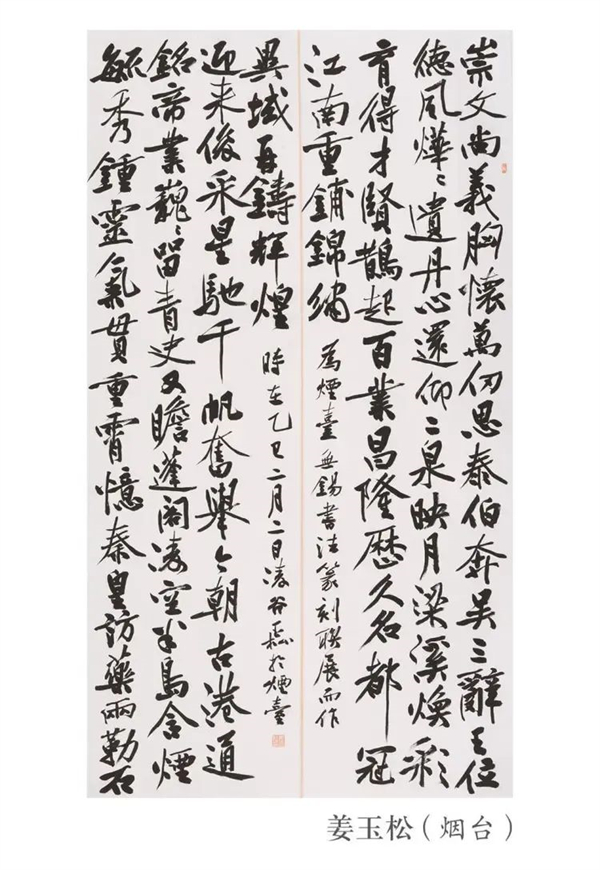 崇文尚義胸懷萬仞思泰伯奔吴三辭王位
德風燁々遺丹心還仰二泉映月梁溪煥彩
育得才賢鵲起百業昌隆歷久名都冠
江南重鋪錦繡
為煙臺無錫書法篆刻聯展而作
毓秀鍾靈氣貫重霄憶秦皇訪藥兩勒石
銘帝業巍々留青史又瞻蓬閣凌空半島含煙
迎来俊采星馳千帆奮舉今朝古港通
異域再鑄輝煌
時在乙巳二月二日凌谷於煙臺
姜玉松（烟台）